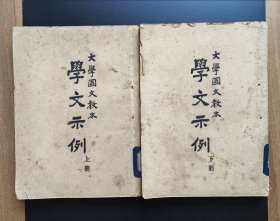 大學國文教本
學文示例
上册
大學國文教本
學文示例
下册